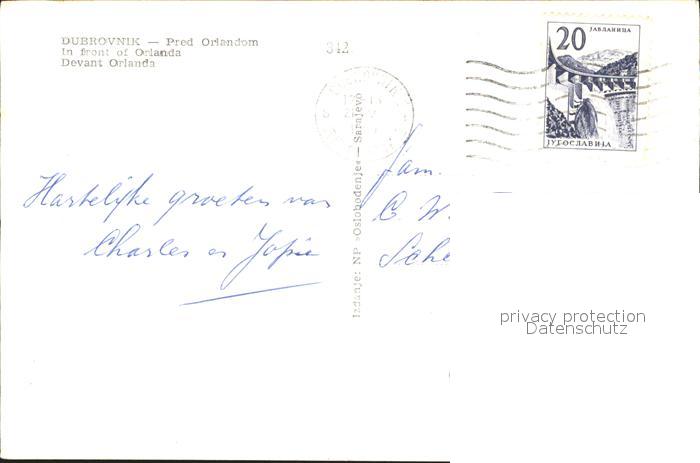 DUBROVNIK — Pred Orlandom
In front of Orlanda
Devant Orlanda
342
20
ЈАБЛАНИЦА
ЈУГОСЛАВИЈА
Izdanje: NP »Oslobođenje« — Sarajevo
Hartelijke groeten van
Charles en Jopie
Fam.
C. W.
Sche
privacy protection
Datenschutz